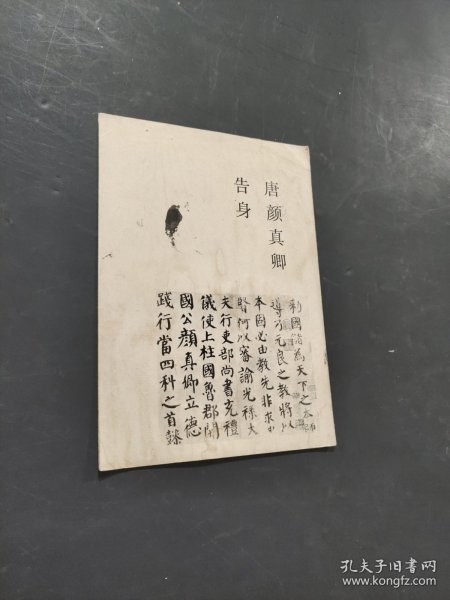 唐颜真卿
告身
勑國儲為天下之本師
導乃元良之教將以
本固必由教先非求
賢何以審諭光祿大
夫行吏部尚書充禮
儀使上柱國魯郡開
國公顏真卿立德
踐行當四科之首懿
孔夫子旧书网
www.kongfz.com